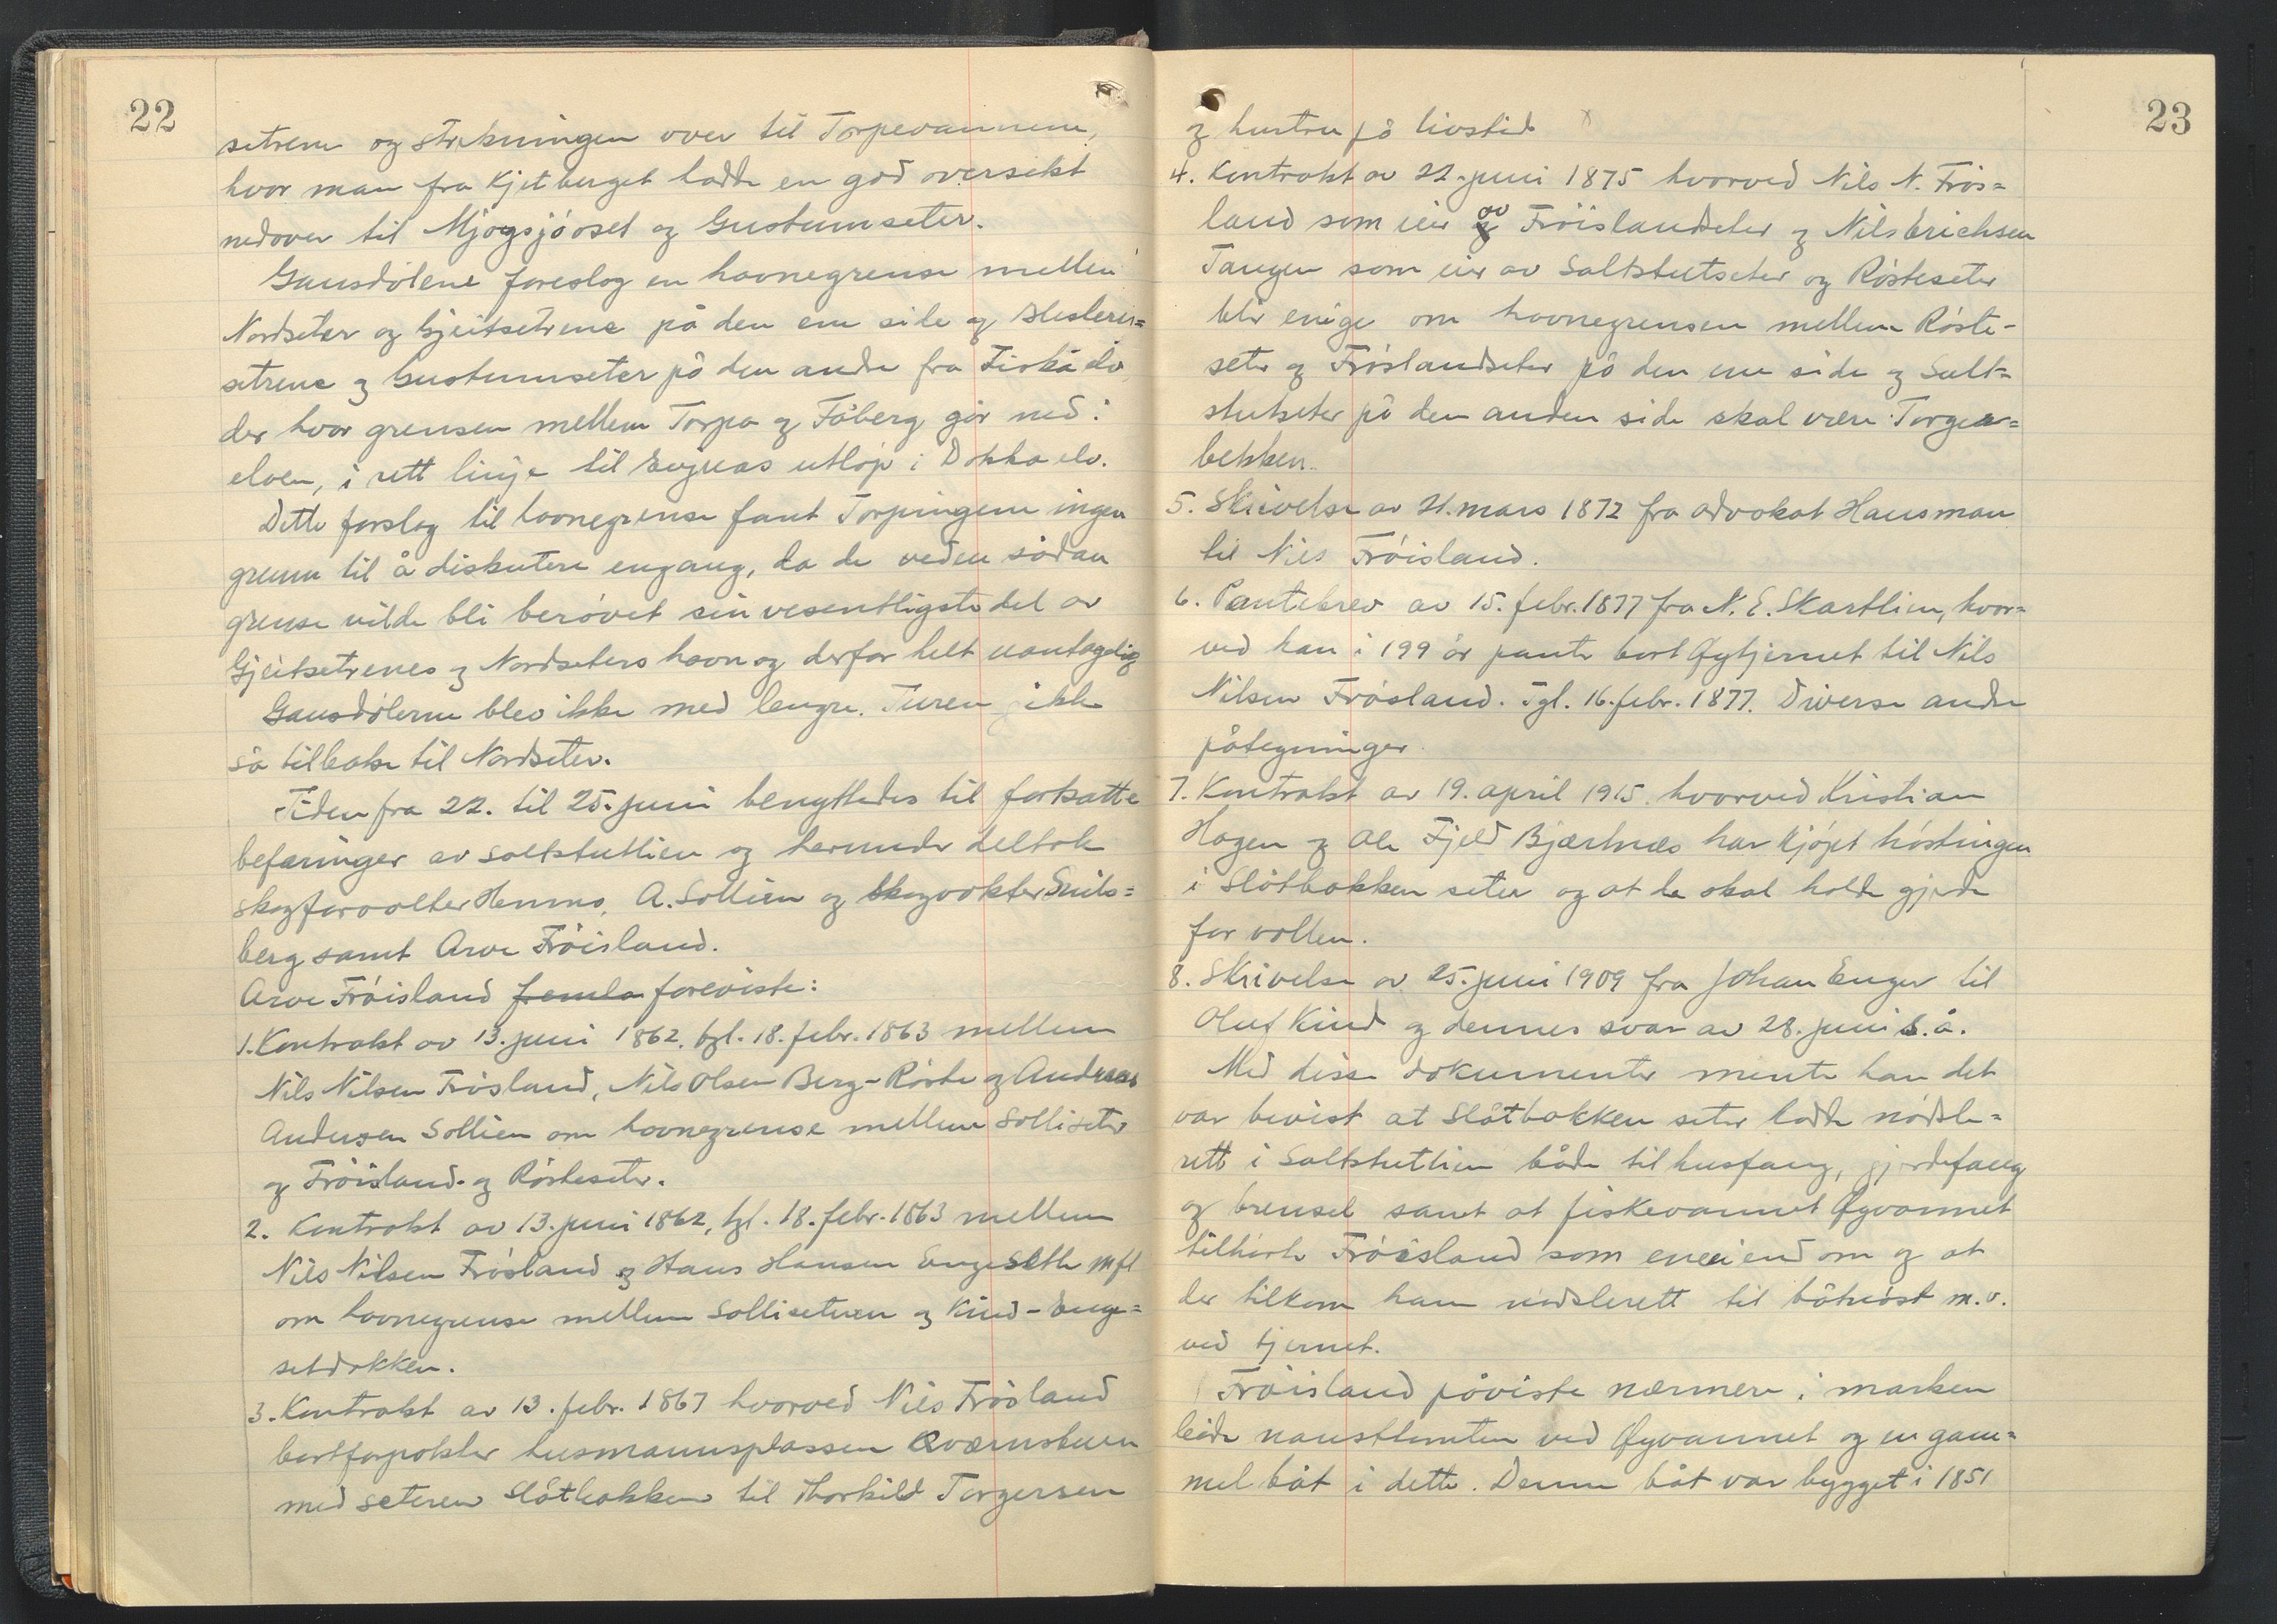 22
setrene og strekningen over til Torpevannene,
hvor man fra Kjetberget hadde en god oversikt
nedover til Mjogsjøoset og Gustumseter.
Gausdølene foreslog en havnegrense mellem
Nordseter og Gjeitsetrene på den ene side og Heslerin=
setrene og Gustumseter på den andre fra Fiskåelv
der hvor grensen mellem Torpa og Fåberg går ned i
elven, i rett linje til Evjuas utløp i Dokka elv.
Dette forslag til havnegrense fant Torpingene ingen
grunn til å diskutere engang, da de ved en sådan
grense vilde bli berøvet sin vesentligste del av
Gjeitsetrenes og Nordseters havn og derfor helt uantagelig
Gausdølerne blev ikke med lengre. Turen gikk
så tilbake til Nordseter.
Tiden fra 22. til 25. juni benyttedes til fortsatte
befaringer av Saltstutlien og herunder deltok
skogforvalter Henno, A. Sollien og skogvokter Snils=
berg samt Arve Frøisland.
Arve Frøisland femla foreviste:
1. Kontrakt av 13. juni 1862, tgl. 18. febr. 1863 mellem
Nils Nilsen Frøsland, Nils Olsen Berg-Røste og Andreas
Andersen Sollien om havnegrense mellem Solliseter
og Frøisland- og Røsteseter.
2. Kontrakt av 13. juni 1862, tgl. 18. febr. 1863 mellem
Nils Nilsen Frøsland og Hans Hansen Engeseth mfl
om havnegrense mellem Sollisetren og Kind-Enge=
setdokken.
3. Kontrakt av 13. febr. 1867 hvorved Nils Frøsland
bortforpakter husmannsplassen Kværnstuen
med seteren Slåtbakken til Thorkild Torgersen
23
og hustru på livstid
4. Kontrakt av 22. juni 1875 hvorved Nils N. Frøs=
land som eier av Frøislandseter og Nils Erichsen
Tangen som eier av Saltstutseter og Røsteseter
blir enige om havnegrensen mellem Røste-
seter og Frøslandseter på den ene side og Salt=
stutseter på den anden side skal være Torger=
bekken.
5. Skrivelse av 21. mars 1872 fra advokat Hansman
til Nils Frøisland.
6. Pantebrev av 15. febr. 1877 fra N. E. Skartlien, hvor=
ved han i 199 år pante bort Øytjernet til Nils
Nilsen Frøsland. Tgl. 16. febr. 1877. Diverse andre
påtegninger.
7. Kontrakt av 19. april 1915 hvorved Kristian
Hagen og Ole Fjeld Bjærtnæs har kjøpt høstingen
i Slåtbakken seter og at de skal holde gjerde
for vollen.
8. Skrivelse av 25. juni 1909 fra Johan Enger til
Oluf Kind og dennes svar av 28. juni s.å.
Med disse dokumenter mente han det
var bevist at Slåtbakken seter hadde nødsle=
rett i Saltstutlien både til husfang, gjerdefang
og brensel samt at fiskevannet Øyvannet
tilhørte Frøisland som eneeiendom og at
der tilkom ham nødslerett til båtnøst m.v.
ved tjernet.
Frøisland påviste nærmere i marken
både nausttomten ved Øyvannet og en gam=
mel båt i dette. Denne båt var bygget i 1851